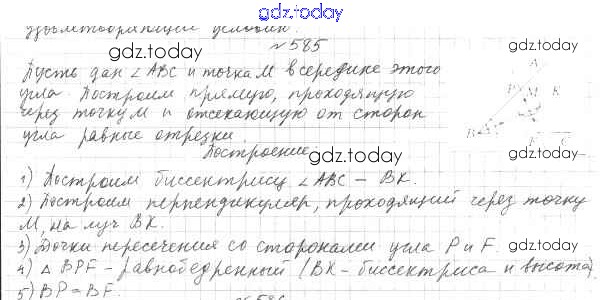 gdz.today
удовлетворяющий условию.
№585
gdz.today
gdz.today
Пусть дан ∠ABC и точка M в середине этого
угла. Построим прямую, проходящую
через точку M и отсекающую от сторон
угла равные отрезки.
A
P
M
K
B
F
C
gdz.today
Построение:
gdz.today
1) Построим биссектрису ∠ABC – BK.
2) Построим перпендикуляр, проходящий через точку
M, на луч BK.
3) Точки пересечения со сторонами угла P и F.
gdz.today
4) △ BPF – равнобедренный (BK – биссектриса и высота).
5) BP = BF.
gdz.today